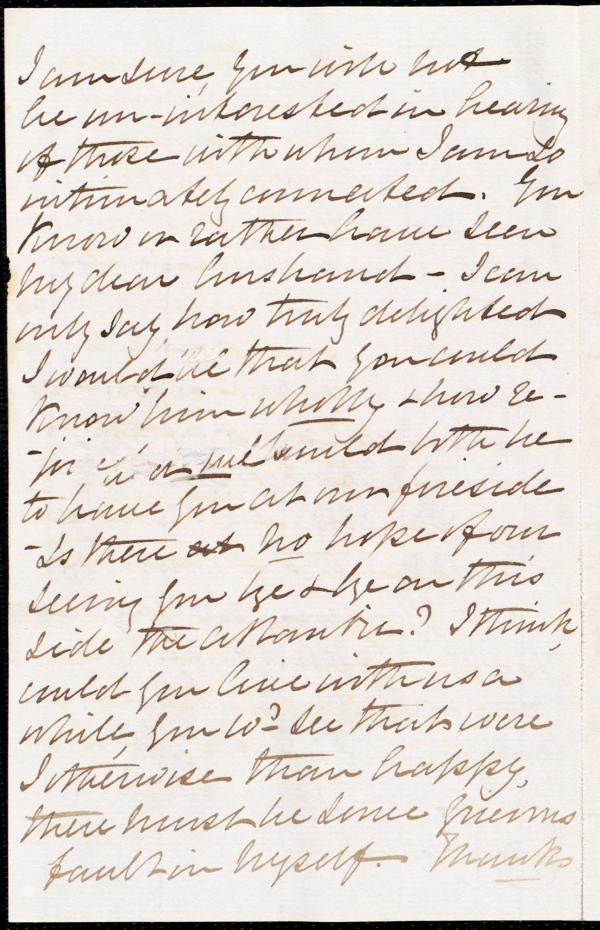 I am sure, you will not
be un-interested in hearing
of those with whom I am so
intimately connected. You
know or rather have seen
my dear husband - I can
only say how truly delighted
I would be that you could
know him wholly & how re-
-joiced we should both be
to have you at our fireside
- Is there no hope of our
seeing you bye & bye on this
side the Atlantic? I think,
could you live with us a
while, you wd. see that were
I otherwise than happy,
there must be some grievous
fault in myself. Thanks